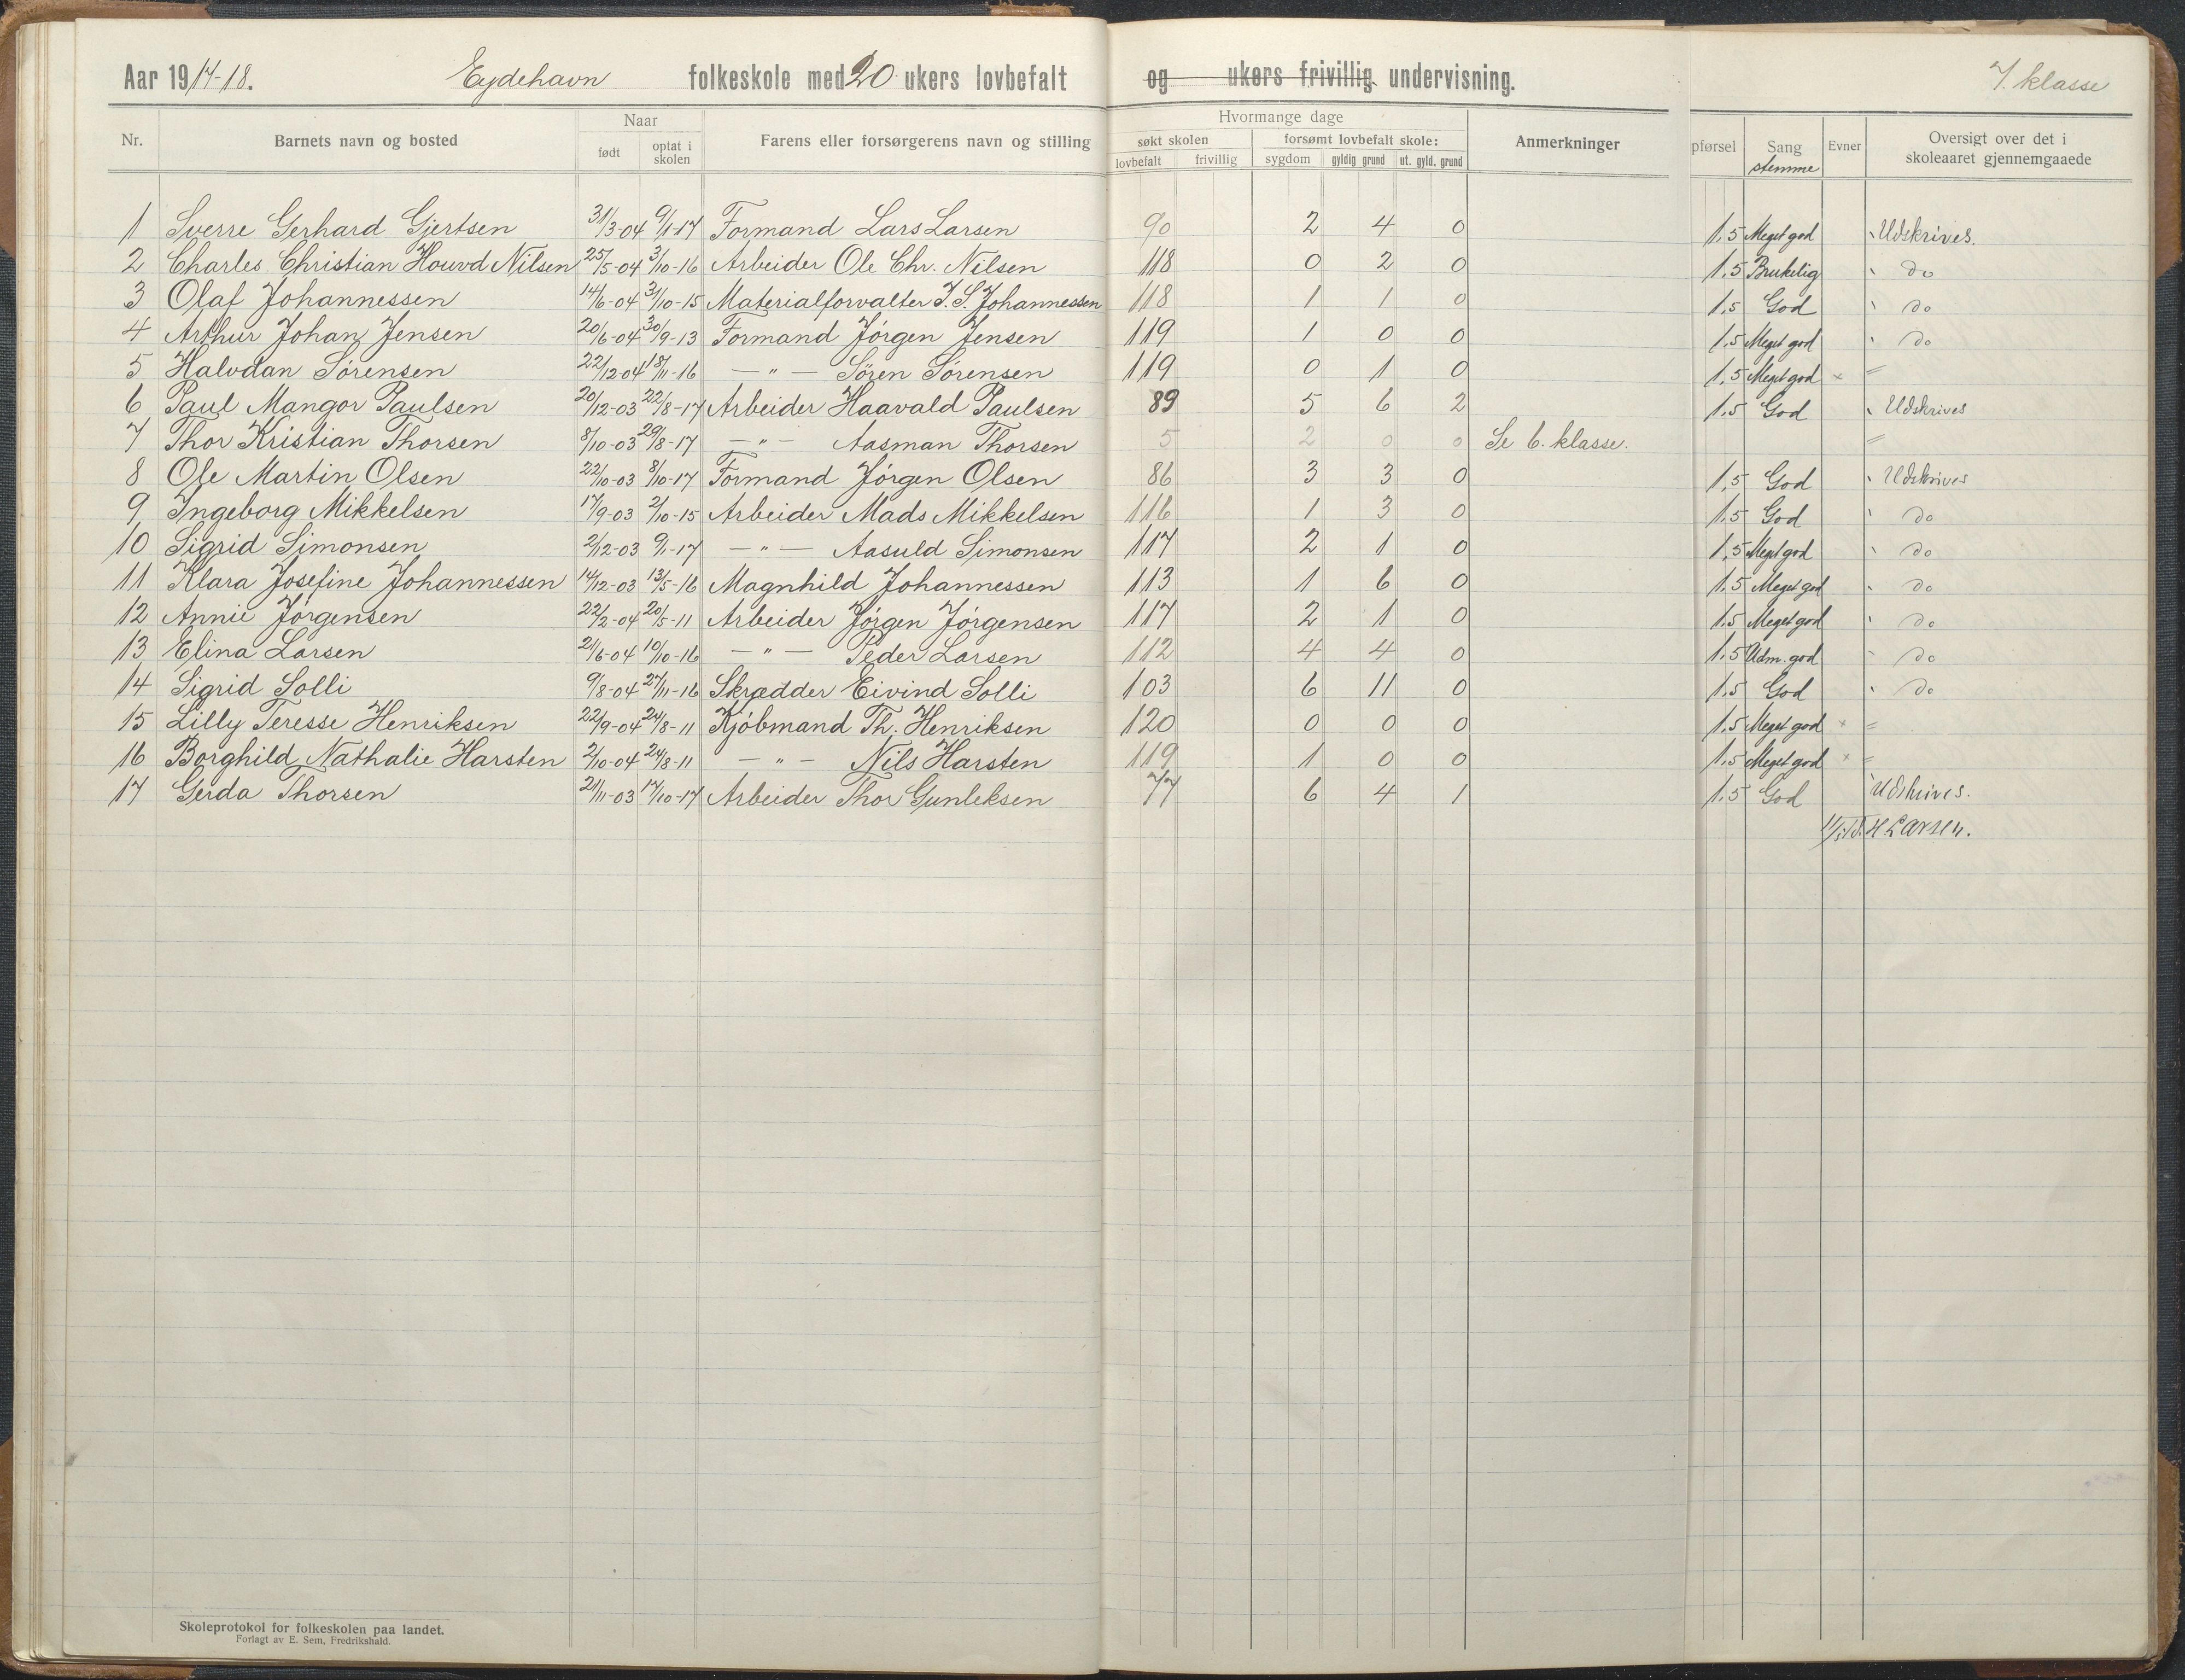 Aar 1917-18. Eydehavn folkeskole med 20 ukers lovbefalt og ukers frivillig undervisning. 7. klasse
Nr. Barnets navn og bosted Naar Farens eller forsørgerens navn og stilling Hvormange dage Anmerkninger pførsel Sang Evner Oversigt over det i
født optat i skolen søkt skolen forsømt lovbefalt skole: stemme skoleaaret gjennemgaaede
lovbefalt frivillig sygdom gyldig grund ut. gyld. grund
1 Sverre Gerhard Gjertsen 31/3-04 9/1-17 Formand Lars Larsen 90 2 4 0 1.5 Meget god Udskrives.
2 Charles Christian Houvd Nilsen 25/5-04 3/10-16 Arbeider Ole Chr. Nilsen 118 0 2 0 1.5 Brukelig do
3 Olaf Johannessen 14/6-04 31/10-15 Materialforvalter J. S. Johannessen 118 1 1 0 1.5 God do
4 Arthur Johan Jensen 20/6-04 30/9-13 Formand Jørgen Jensen 119 1 0 0 1.5 Meget god do
5 Halvdan Sørensen 22/12-04 18/11-16 — " — Sören Sørensen 119 0 1 0 1.5 Meget god × =
6 Paul Mangor Paulsen 20/12-03 22/8-17 Arbeider Haavald Paulsen 89 5 6 2 1.5 God Udskrives
7 Thor Kristian Thorsen 8/10-03 29/8-17 — " — Aasman Thorsen 5 2 0 0 Se 6. klasse. =
8 Ole Martin Olsen 22/10-03 8/10-17 Formand Jørgen Olsen 86 3 3 0 1.5 God Udskrives
9 Ingeborg Mikkelsen 17/9-03 2/10-15 Arbeider Mads Mikkelsen 116 1 3 0 1.5 God do
10 Sigrid Simonsen 2/12-03 9/1-17 — " — Aasuld Simonsen 117 2 1 0 1.5 Meget god do
11 Klara Josefine Johannessen 14/12-03 13/5-16 Magnhild Johannessen 113 1 6 0 1.5 Meget god do
12 Annie Jørgensen 22/2-04 20/5-11 Arbeider Jørgen Jørgensen 117 2 1 0 1.5 Meget god do
13 Elina Larsen 21/6-04 10/10-16 — " — Peder Larsen 112 4 4 0 1.5 Udm. god do
14 Sigrid Solli 9/8-04 27/11-16 Skrædder Eivind Solli 103 6 11 0 1.5 God do
15 Lilly Teresse Henriksen 22/9-04 24/8-11 Kjøbmand Th. Henriksen 120 0 0 0 1.5 Meget god × =
16 Borghild Nathalie Harsten 2/10-04 24/8-11 — " — Nils Harsten 119 1 0 0 1.5 Meget god × =
17 Gerda Thorsen 21/11-03 17/10-17 Arbeider Thor Gunleksen 77 6 4 1 1.5 God Udskrives.
H Larsen.
Skoleprotokol for folkeskolen paa landet.
Forlagt av E. Sem, Fredrikshald.